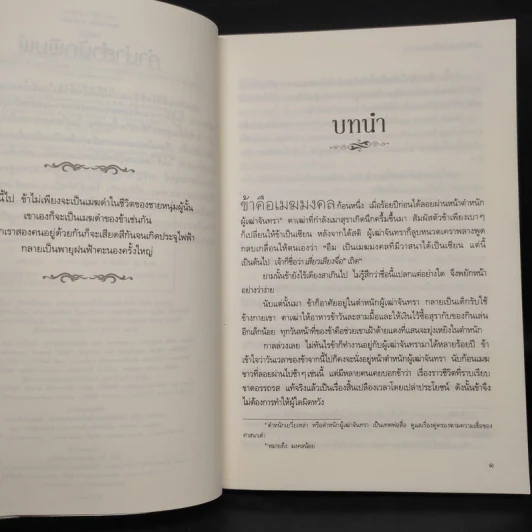 นี้ไป ข้าไม่เพียงจะเป็นเมฆดำในชีวิตของชายหนุ่มผู้นั้น
เขาเองก็จะเป็นเมฆดำของข้าเช่นกัน
กเราสองคนอยู่ด้วยกันก็จะเสียดสีกันจนเกิดประจุไฟฟ้า
กลายเป็นพายุฝนฟ้าคะนองครั้งใหญ่
บทนำ
ข้าคือเมฆมงคลก้อนหนึ่ง เมื่อร้อยปีก่อนได้ลอยผ่านหน้าตำหนัก
ผู้เฒ่าจันทรา* ตาเฒ่าที่กำลังเมาสุราเกิดนึกครึ้มขึ้นมา สัมผัสตัวข้าเพียงเบาๆ
ก็เปลี่ยนให้ข้าเป็นเซียน หลังจากได้สติ ผู้เฒ่าจันทราก็ลูบหนวดเคราพลางพูด
กลบเกลื่อนให้ตนเองว่า "อืม เป็นเมฆมงคลที่มีวาสนาได้เป็นเซียน แต่นี้
เป็นต้นไป เจ้าก็ชื่อว่า เสียวเสียงจื่อ* เถิด"
ยามนั้นข้ายังไร้เดียงสาเกินไป ไม่รู้สึกว่าชื่อนี้แปลกแต่อย่างใด จึงพยักหน้า
อย่างว่าง่าย
นับแต่นั้นมา ข้าก็อาศัยอยู่ในตำหนักผู้เฒ่าจันทรา กลายเป็นเด็กรับใช้
ข้างกายเขา ตาเฒ่าให้อาหารข้าวันละสามมื้อและให้เงินไว้ซื้อสุรากับของกินเล่น
อีกเล็กน้อย ทุกวันหน้าที่ของข้าคือช่วยเขาเฝ้าด้ายแดงที่แสนจะยุ่งเหยิงในตำหนัก
กาลล่วงเลย ไม่ทันไรข้าก็ทำงานอยู่กับผู้เฒ่าจันทรามาได้หลายร้อยปี ข้า
เข้าใจว่าวันเวลาของข้าจากนี้ไปก็คงจะนั่งอยู่หน้าตำหนักผู้เฒ่าจันทรา นับก้อนเมฆ
ขาวที่ลอยผ่านไปช้าๆ เช่นนี้ แต่มีหลายคนเคยบอกข้าว่า เรื่องราวชีวิตที่ราบเรียบ
ขาดอรรถรส แท้จริงแล้วเป็นเรื่องสิ้นเปลืองเวลาโดยเปล่าประโยชน์ ดังนั้นข้าจึง
ไม่ต้องการทำให้ผู้ใดผิดหวัง
* หมายถึง มงคลน้อย
๑